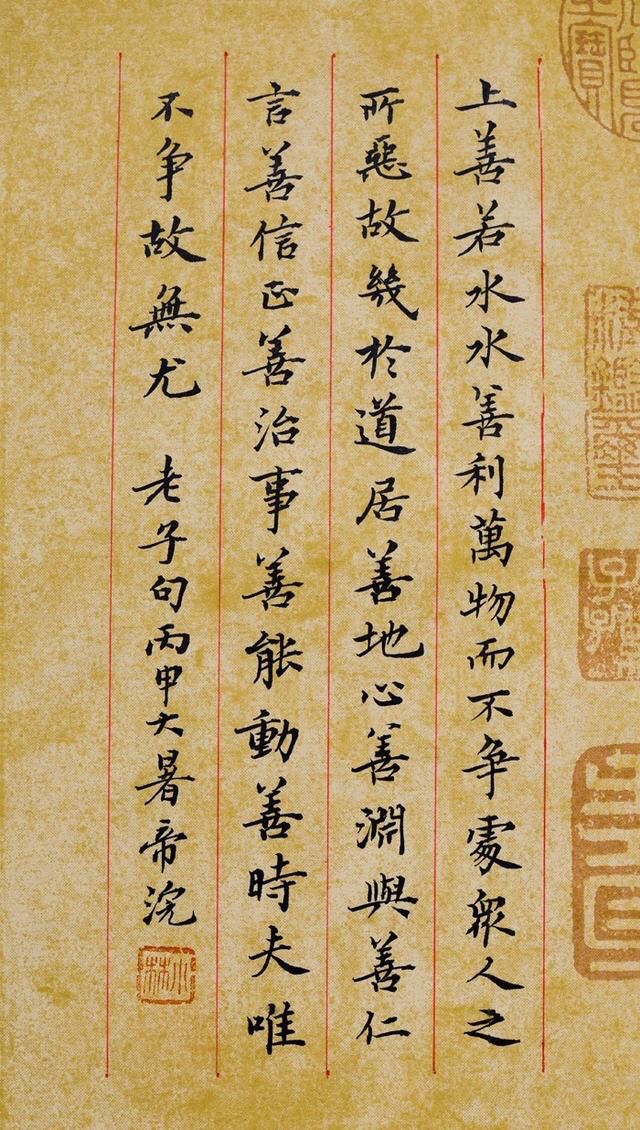 上善若水水善利萬物而不争處衆人之
所惡故幾於道居善地心善淵與善仁
言善信正善治事善能動善時夫唯
不争故無尤 老子句丙申大暑帝浣
小林